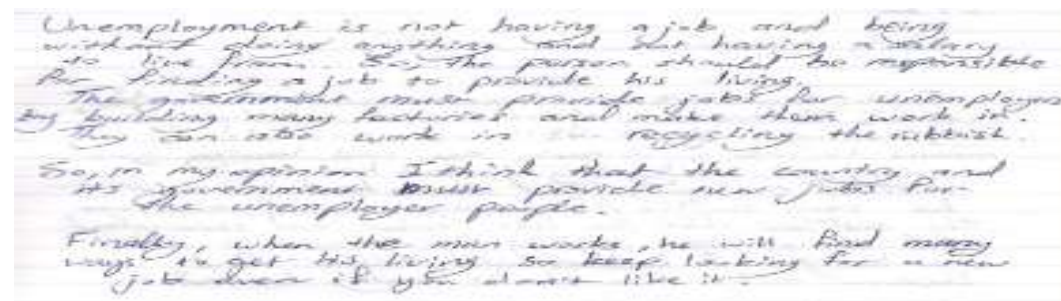 Unemployment is not having a job and being
without doing anything and not having a salary
to live from. So, the person should be responsible
for finding a job to provide his living.
The government must provide jobs for unemployer
by building many factories and make them work in.
They can also work in recycling the rubbish.
So, in my opinion I think that the country and
its government must provide new jobs for
the unemployer people.
Finally, when the man works, he will find many
ways to get his living so keep looking for a new
job even if you don't like it.